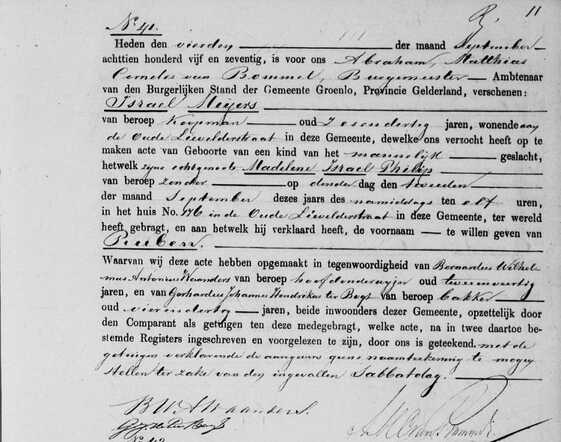 No 41.
11
Heden den vierden der maand September
achttien honderd vijf en zeventig, is voor ons Abraham, Matthias
Cornelis van Bommel, Burgemeester Ambtenaar
van den Burgerlijken Stand der Gemeente Groenlo, Provincie Gelderland, verschenen:
Israel Meyers
van beroep Koopman oud zesendertig jaren, wonende aan
de Oude Lievelderstraat in deze Gemeente, dewelke ons verzocht heeft op te
maken acte van Geboorte van een kind van het mannelijk geslacht,
hetwelk zijne echtgenoote Madelene Israel Philip
van beroep zonder op den dag den tweeden
der maand September dezes jaars des namiddags ten elf uren,
in het huis No. 176 in de Oude Lievelderstraat in deze Gemeente, ter wereld
heeft gebragt, en aan hetwelk hij verklaard heeft, de voornaam te willen geven van
Waarvan wij deze acte hebben opgemaakt in tegenwoordigheid van Bernardus Wilhel-
mus Antonius Waanders van beroep hoofdonderwijzer oud tweeenveertig
jaren, en van Gerhardus Johannes Hendrikus te Bogt van beroep bakker
oud vierendertig jaren, beide inwoonders dezer Gemeente, opzettelijk door
den Comparant als getuigen ten deze medegebragt, welke acte, na in twee daartoe be-
stemde Registers ingeschreven en voorgelezen te zijn, door ons is geteekend. met de
getuigen verklarende de aangever geene naamteekening te mogen
stellen ter zake van den ingevallen Sabbatdag.
BWAWaanders